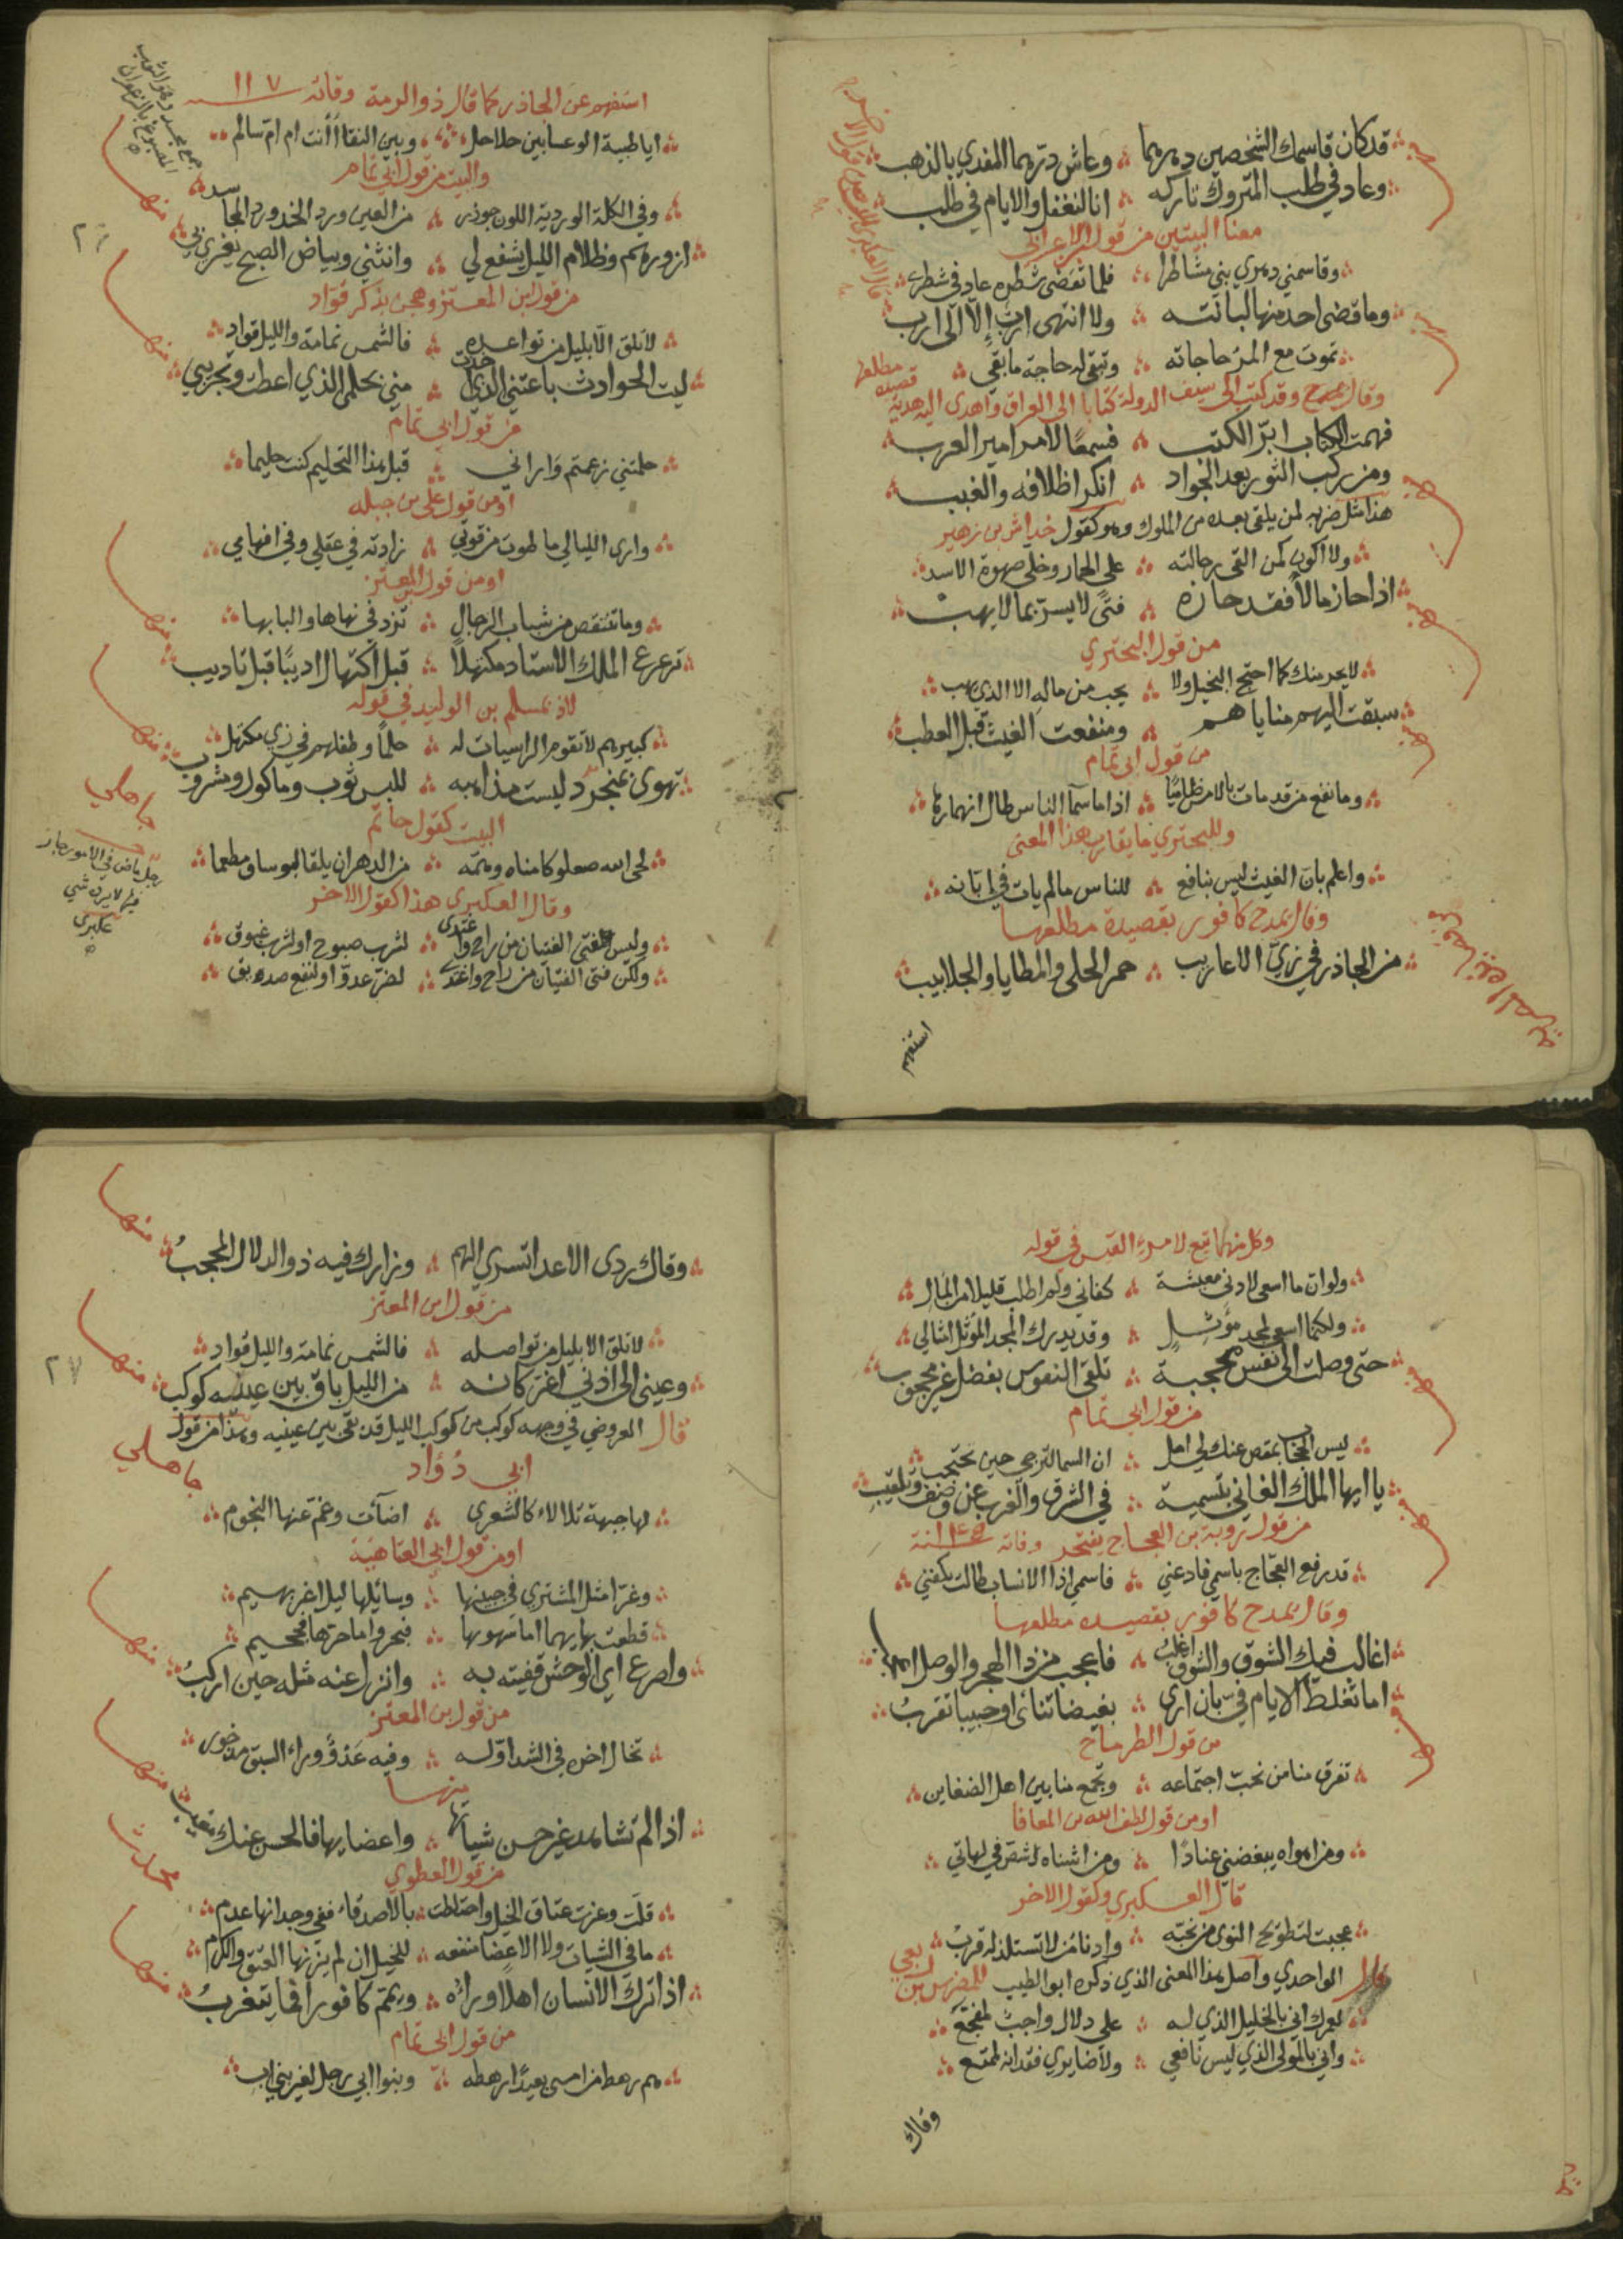 قد كان قاسمك الشخصين دهرهما ؞ وعاش درهما المفدي بالذهب
وعاد في طلب المتروك تاركه ؞ انا لنغفل والايام في طلب
معنا البيتين من قول الاعرابي
وقاسمني دهري بني مشاطرا ؞ فلما تقضى شطره عاد في شطري
وما قضى احد منها لبانته ؞ ولا انتهى ارب إلا الى ارب
تموت مع المرء حاجاته ؞ وتبقى له حاجة ما بقي
وقال يمدح وقد كتب الى سيف الدولة كتابا الى العراق واهدى اليه هدية
قصيدة مطلعها
فهمت الكتاب ابر الكتب ؞ فسمعًا لامر امير العرب
ومن ركب الثور بعد الجواد ؞ انكر اظلافه والغبب
هذا مثل ضربه لمن يلقى بعده من الملوك وهو كقول خداش بن زهير
ولا اكون كمن القى رحالته ؞ على الحمار وخلى صهوة الاسد
اذا حاز مالاً فقد حازه ؞ فتًى لا يسر بما لا يهب
من قول البحتري
لا يحتج كما احتج البخيل ولا ؞ يحب من ماله الا الذي يهب
سبقت اليهم مناياهم ؞ ومنفعت الغيث قبل العطب
من قول ابي تمام
وما نفع من قد مات بالامس ظاميًا ؞ اذا ما سما الناس طال انهمارها
وللبحتري ما يقارب هذا المعنى
واعلم بان الغيث ليس بنافع ؞ للناس ما لم يات في ابانه
وقال يمدح كافور بقصيدة مطلعها
من الجاذر في زي الاعاريب ؞ حمر الحلى والمطايا والجلابيب
استفهم
استفهم عن الجاذر كما قال ذو الرمة وفاته ١١٧
ايا ظبية الوعسا بين حلاحل ؞ وبين النقا أأنت ام ام سالم
والبيت من قول ابي تمام
وفي الكلة الوردية اللون جوذر ؞ من العين ورد الخد ورد المجاسد
ازورهم وظلام الليل يشفع لي ؞ وانثني وبياض الصبح يغري بي
من قول ابن المعتز وهجن بذكر قواد
لا تلق الا بليل من تواعده ؞ فالشمس نمامة والليل قواد
ليت الحوادث باعتني الذي اخذت ؞ مني بحلمي الذي اعطت وتجريبي
من قول ابي تمام
حلمتني زعمتم واراني ؞ قبل هذا التحليم كنت حليما
او من قول علي بن جبله
وارى الليالي ما طوت من قوتي ؞ زادته في عقلي وفي افهامي
او من قول ابن المعتز
وما تنتقص من شباب الرجال ؞ تزد في نهاها والبابها
ترعرع الملك الاستاد مكتهلاً ؞ قبل اكتهال اديبًا قبل تاديب
لاذ بمسلم بن الوليد في قوله
كبيرهم لا تقوم الراسيات له ؞ حلمًا وطفلهم في زي مكتهل
تهوى بمنجرد ليست مذاهبه ؞ للبس ثوب وماكول ومشروب
جاهلي
البيت كقول حاتم
لحى الله صعلوكا مناه وهمه ؞ من الدهر ان يلقا لبوسا ومطعما
وقال العكبري هذا كقول الاخر
وليس فتى الفتيان من راح واغتدى ؞ لشرب صبوح او لشرب غبوق
ولكن فتى الفتيان من راح واغتدى ؞ لضر عدو او لنفع صديق
وكل منهما تبع لامرء القيس في قوله
ولو ان ما اسعى لادنى معيشة ؞ كفاني ولم اطلب قليلا من المال
ولكنما اسعى لمجد مؤثل ؞ وقد يدرك المجد المؤثل امثالي
حتى وصلت الى نفس محجبة ؞ تلقى النفوس بفضل غير محجوب
من قول ابي تمام
ليس الحجاب بمقص عنك لي امل ؞ ان السما لترجى حين تحتجب
يا ايها الملك الغاني بتسمية ؞ في الشرق والغرب عن وصف وتلقيب
من قول روبة بن العجاج يفتخر وفاته ١٤٥ سنة
قد رفع العجاج باسمي فادعني ؞ فاسمي اذا الانساب طالت يكفني
وقال يمدح كافور بقصيدة مطلعها
اغالب فيك الشوق والشوق اغلب ؞ واعجب من ذا الهجر والوصل اعجب
اما تغلط الايام في بان ارى ؞ بغيضا تنائى او حبيبا تقرب
من قول الطرماح
تفرق منا من نحب اجتماعه ؞ وتجمع منا بين اهل الضغاين
او من قول لطف الله بن المعافا
ومن اهواه يبغضني عنادًا ؞ ومن اشناه شص في لهاتي
قال العسكبري وكقول الاخر
عجبت لتطويح النوى من نحبه ؞ وادنا من لا تستلذ له قرب
قال الواحدي واصل هذا المعنى الذي ذكره ابو الطيب للمضرس بن ربعي
لعمرك اني بالخليل الذي له ؞ علي دلال واجب لمفجع
واني بالمولى الذي ليس نافعي ؞ ولا ضايري فقدانه لممتع
وقاك
وقاك ردى الاعدا تسري اليهم ؞ وزارك فيه ذو الدلال المحجب
من قول ابن المعتز
لا تلق الا بليل من تواصله ؞ فالشمس نمامة والليل قواد
وعيني الى اذني اغر كانه ؞ من الليل باق بين عينيه كوكب
قال العروضي في وجهه كوكب من كوكب الليل قد بقي بين عينيه وهذا من قول
ابي دؤاد
جاهلي
لها جبهة تلالاء كالشعرى ؞ اضآت وغم عنها النجوم
او من قول ابي العتاهية
وغرا مثل المشتري في جبينها ؞ وسايلها ليل اغر بهيم
قطعت بها يهما اما سهوبها ؞ فبحر واما حرها فجحيم
واصرع اي الوحش قفيته به ؞ وانزل عنه مثله حين اركب
من قول بن المعتز
تخال اخره في الشد اوله ؞ وفيه عدو وراء السبق مدخور
منها
اذا لم تشاهد غير حسن شياتها ؞ واعضايها فالحسن عنك مغيب
من قول العطوي
محدث
قلت وعزت عتاق الخيل واختلطت ؞ بالاصدقاء ففي وجدانها عدم
ما في الشيات ولا الاعضا منفعه ؞ للخيل ان لم يزنها العتق والكرم
اذا ترك الانسان اهلا وراءه ؞ ويمم كافورا فما يتغرب
من قول ابي تمام
هم رهط من امسى بعيدًا رهطه ؞ وبنوا ابي رجل لغير بني اب